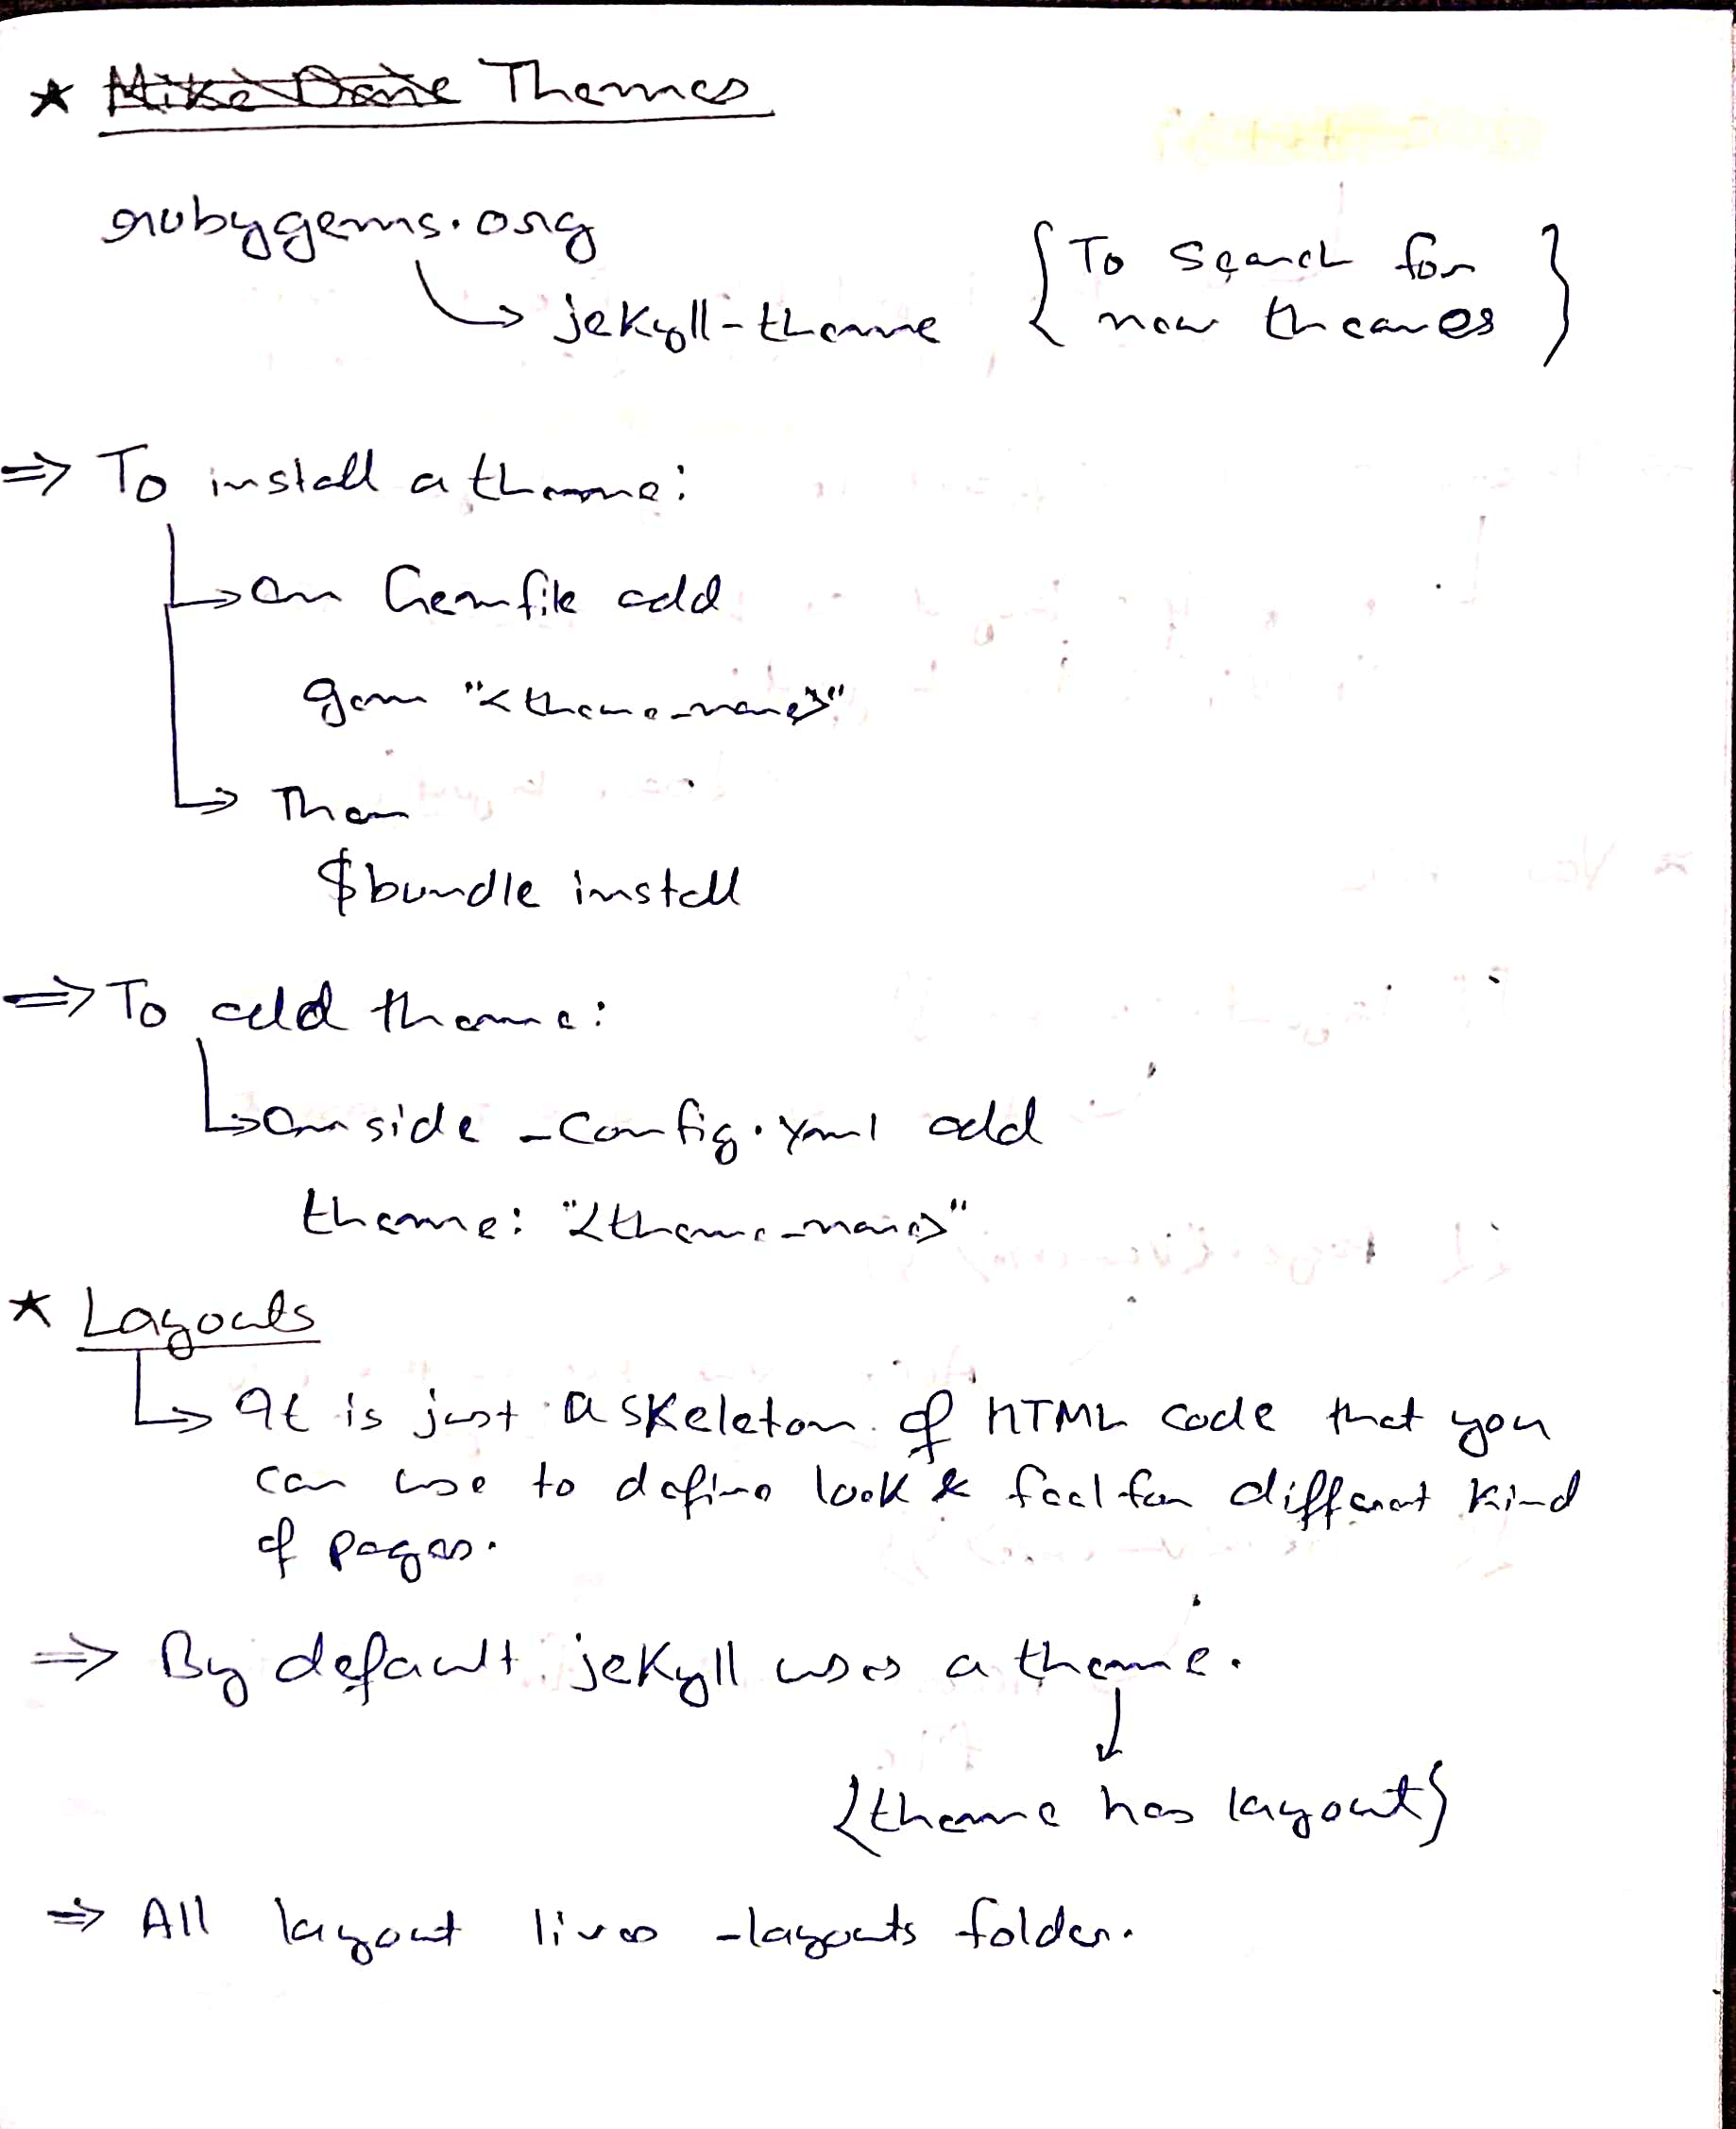 ★ Themes
rubygems.org
↳ jekyll-theme { To Search for new themes }
⇒ To install a theme:
↳ In Gemfile add
gem "<theme_name>"
↳ Then
$bundle install
⇒ To add theme:
↳ Inside _config.yml add
theme: "<theme_name>"
★ Layouts
↳ It is just a skeleton of HTML code that you
can use to define look & feel for different kind
of pages.
⇒ By default jekyll uses a theme.
↓
{theme has layout}
⇒ All layout lives _layouts folder.